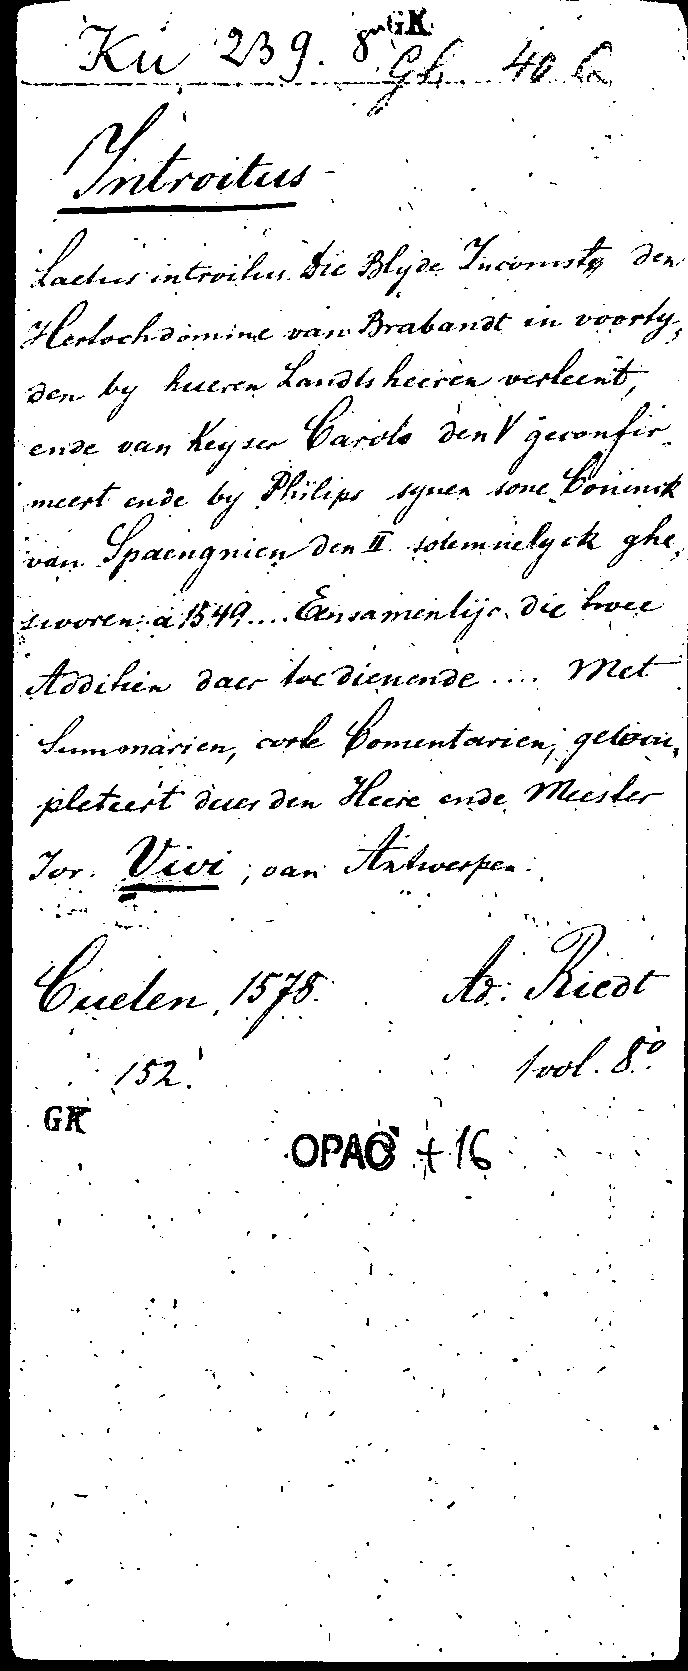 Ku 239. 8° GK.
Gh. 40 b
Introitus
Laetus introitus. Die Blyde Incomste den
Hertochdomme van Brabandt in voorty,
den by hueren Landtsheeren verleent,
ende van Keyser Carolo den V geconfir-
meert ende by Philips synen sone Coninck
van Spaengnien den II solemnelyck ghe,
sworen a 1549.... Ensamenlijc die twee
Additien daer toe dienende .... Met
Summarien, corte Comentarien, gecom,
pleteert duer den Heere ende Meester
Jor. Vivi, van Antwerpen.
Cuelen, 1578. Ad. Riedt
152. 1 vol. 8°.
GK
OPAC + 16